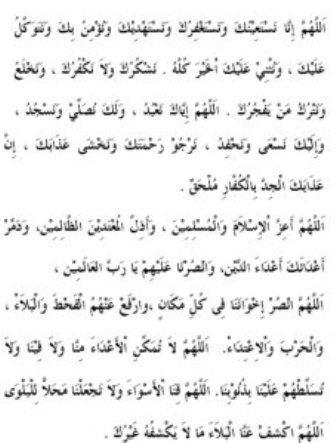 اَللّٰهُمَّ إِنَّا نَسْتَعِيْنُكَ وَنَسْتَغْفِرُكَ وَنَسْتَهْدِيْكَ وَنُؤْمِنُ بِكَ وَنَتَوَكَّلُ
عَلَيْكَ ، وَنُثْنِيْ عَلَيْكَ الْخَيْرَ كُلَّهُ . نَشْكُرُكَ وَلاَ نَكْفُرُكَ ، وَنَخْلَعُ
وَنَتْرُكُ مَنْ يَفْجُرُكَ . اَللّٰهُمَّ إِيَّاكَ نَعْبُدُ ، وَلَكَ نُصَلِّيْ وَنَسْجُدُ ،
وَإِلَيْكَ نَسْعَى وَنَحْفِدُ ، نَرْجُوْ رَحْمَتَكَ وَنَخْشَى عَذَابَكَ ، إِنَّ
عَذَابَكَ الْجِدَّ بِالْكُفَّارِ مُلْحَقٌ .
اَللّٰهُمَّ أَعِزَّ الْإِسْلاَمَ وَالْمُسْلِمِيْنَ ، وَأَذِلَّ الْمُعْتَدِيْنَ الظَّالِمِيْنَ، وَدَمِّرْ
أَعْدَائَكَ أَعْدَاءَ الدِّيْنِ، وَانْصُرْنَا عَلَيْهِمْ يَا رَبَّ الْعَالَمِيْنَ ،
اَللّٰهُمَّ انْصُرْ إِخْوَانَنَا فِى كُلِّ مَكَانٍ ،وَارْفَعْ عَنْهُمُ الْقَحْطَ وَالْبَلاَءَ ،
وَالْحَرْبَ وَالْاِعْتِدَاءَ. اَللّٰهُمَّ لاَ تُمَكِّنِ الْأَعْدَاءَ مِنَّا وَلاَ فِيْنَا وَلاَ
تُسَلِّطْهُمْ عَلَيْنَا بِذُنُوْبِنَا. اَللّٰهُمَّ قِنَا الْأَسْوَاءَ وَلاَ تَجْعَلْنَا مَحَلاًّ لِلْبَلْوَى
اَللّٰهُمَّ اكْشِفْ عَنَّا الْبَلاَءَ مَا لاَ يَكْشِفُهُ غَيْرُكَ .